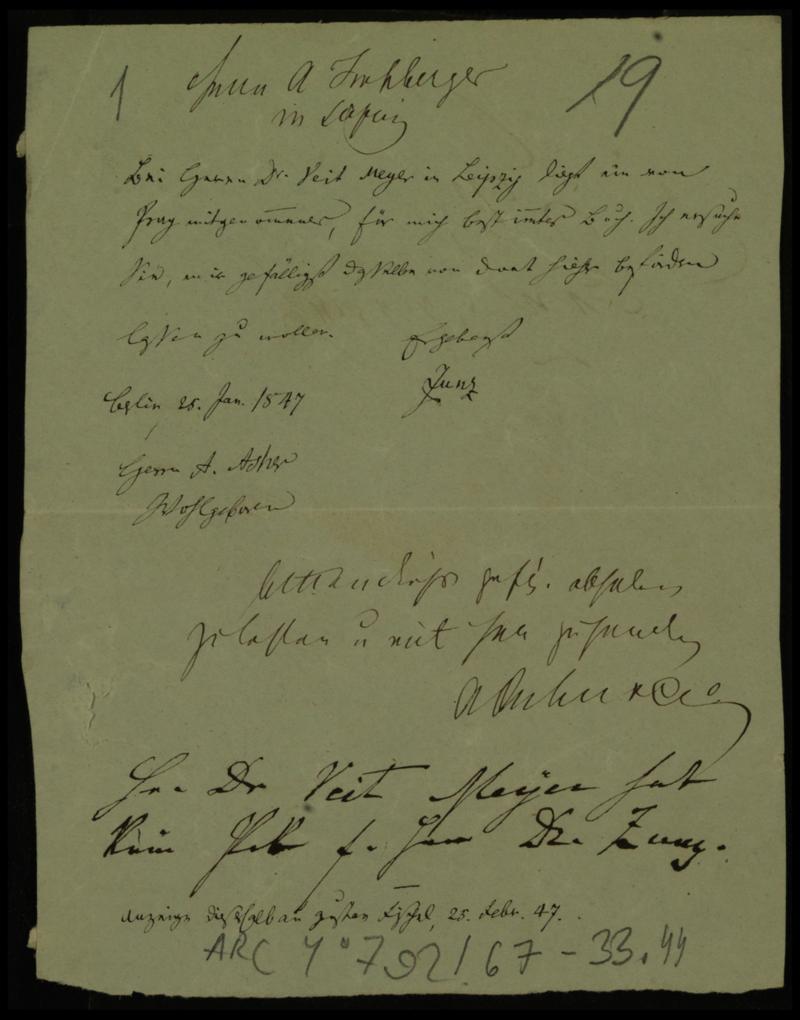 1
19
Herrn A Frohberger
in Leipzig
Bei Herrn Dr. Veit Meyer in Leipzig liegt ein von
Prag mitgenom̅enes, für mich bestim̅tes Buch. Ich ersuche
Sie, mir gefälligst dasselbe von dort hieher befördern
lassen zu wollen. Ergebenst
Zunz
Berlin 25. Jan. 1847
Herrn A. Asher
Wohlgeboren
gefl. abholen
zu lassen u mit her zu senden
A Asher & Co
Herr Dr Veit Meyer hat
kein f. Herrn Dr. Zunz.
Anzeige dieshalb an Gustav 25. Febr. 47.
ARC 4° 792/67-33.44